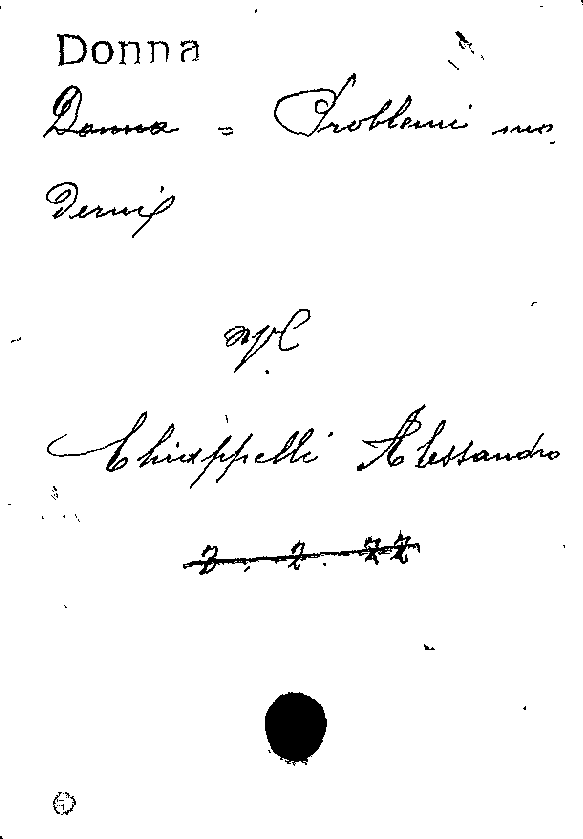 Donna
Donna = Problemi mo-
derni
apl
Chiappelli Alessandro